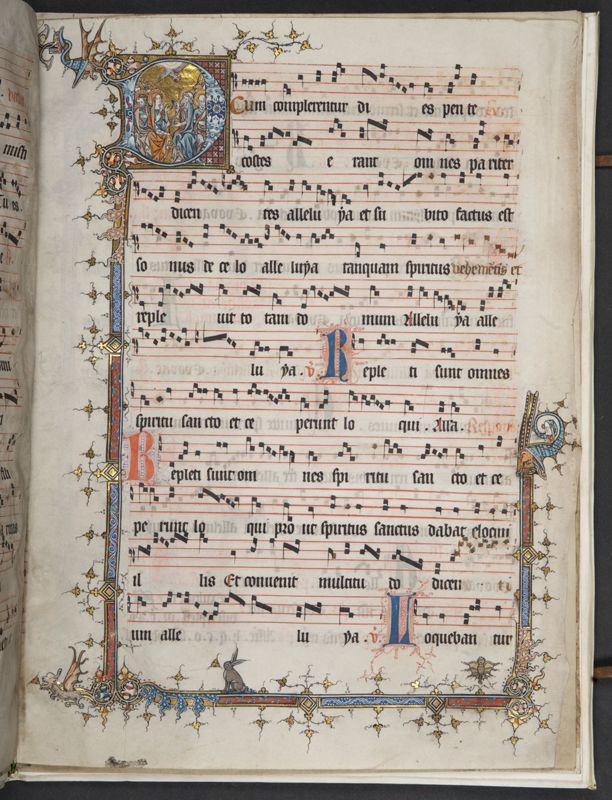 Cum complerentur di es pen te
costes e rant om nes pa riter
dicen tes allelu ya et su bito factus est
so nus de ce lo alle luya tanquam spiritus vehemetis et
reple uit to tam do mum Allelu ya alle
lu ya . v. Reple ti sunt omnes
spiritu san cto et ce perunt lo qui Alla .
Repleti sunt om nes spi ritu san cto et ce
pe runt lo qui pro ut spiritus sanctus dabat eloqui
il lis Et conuenit multitu do dicen ti
um alle lu ya . v. Loqueban tur